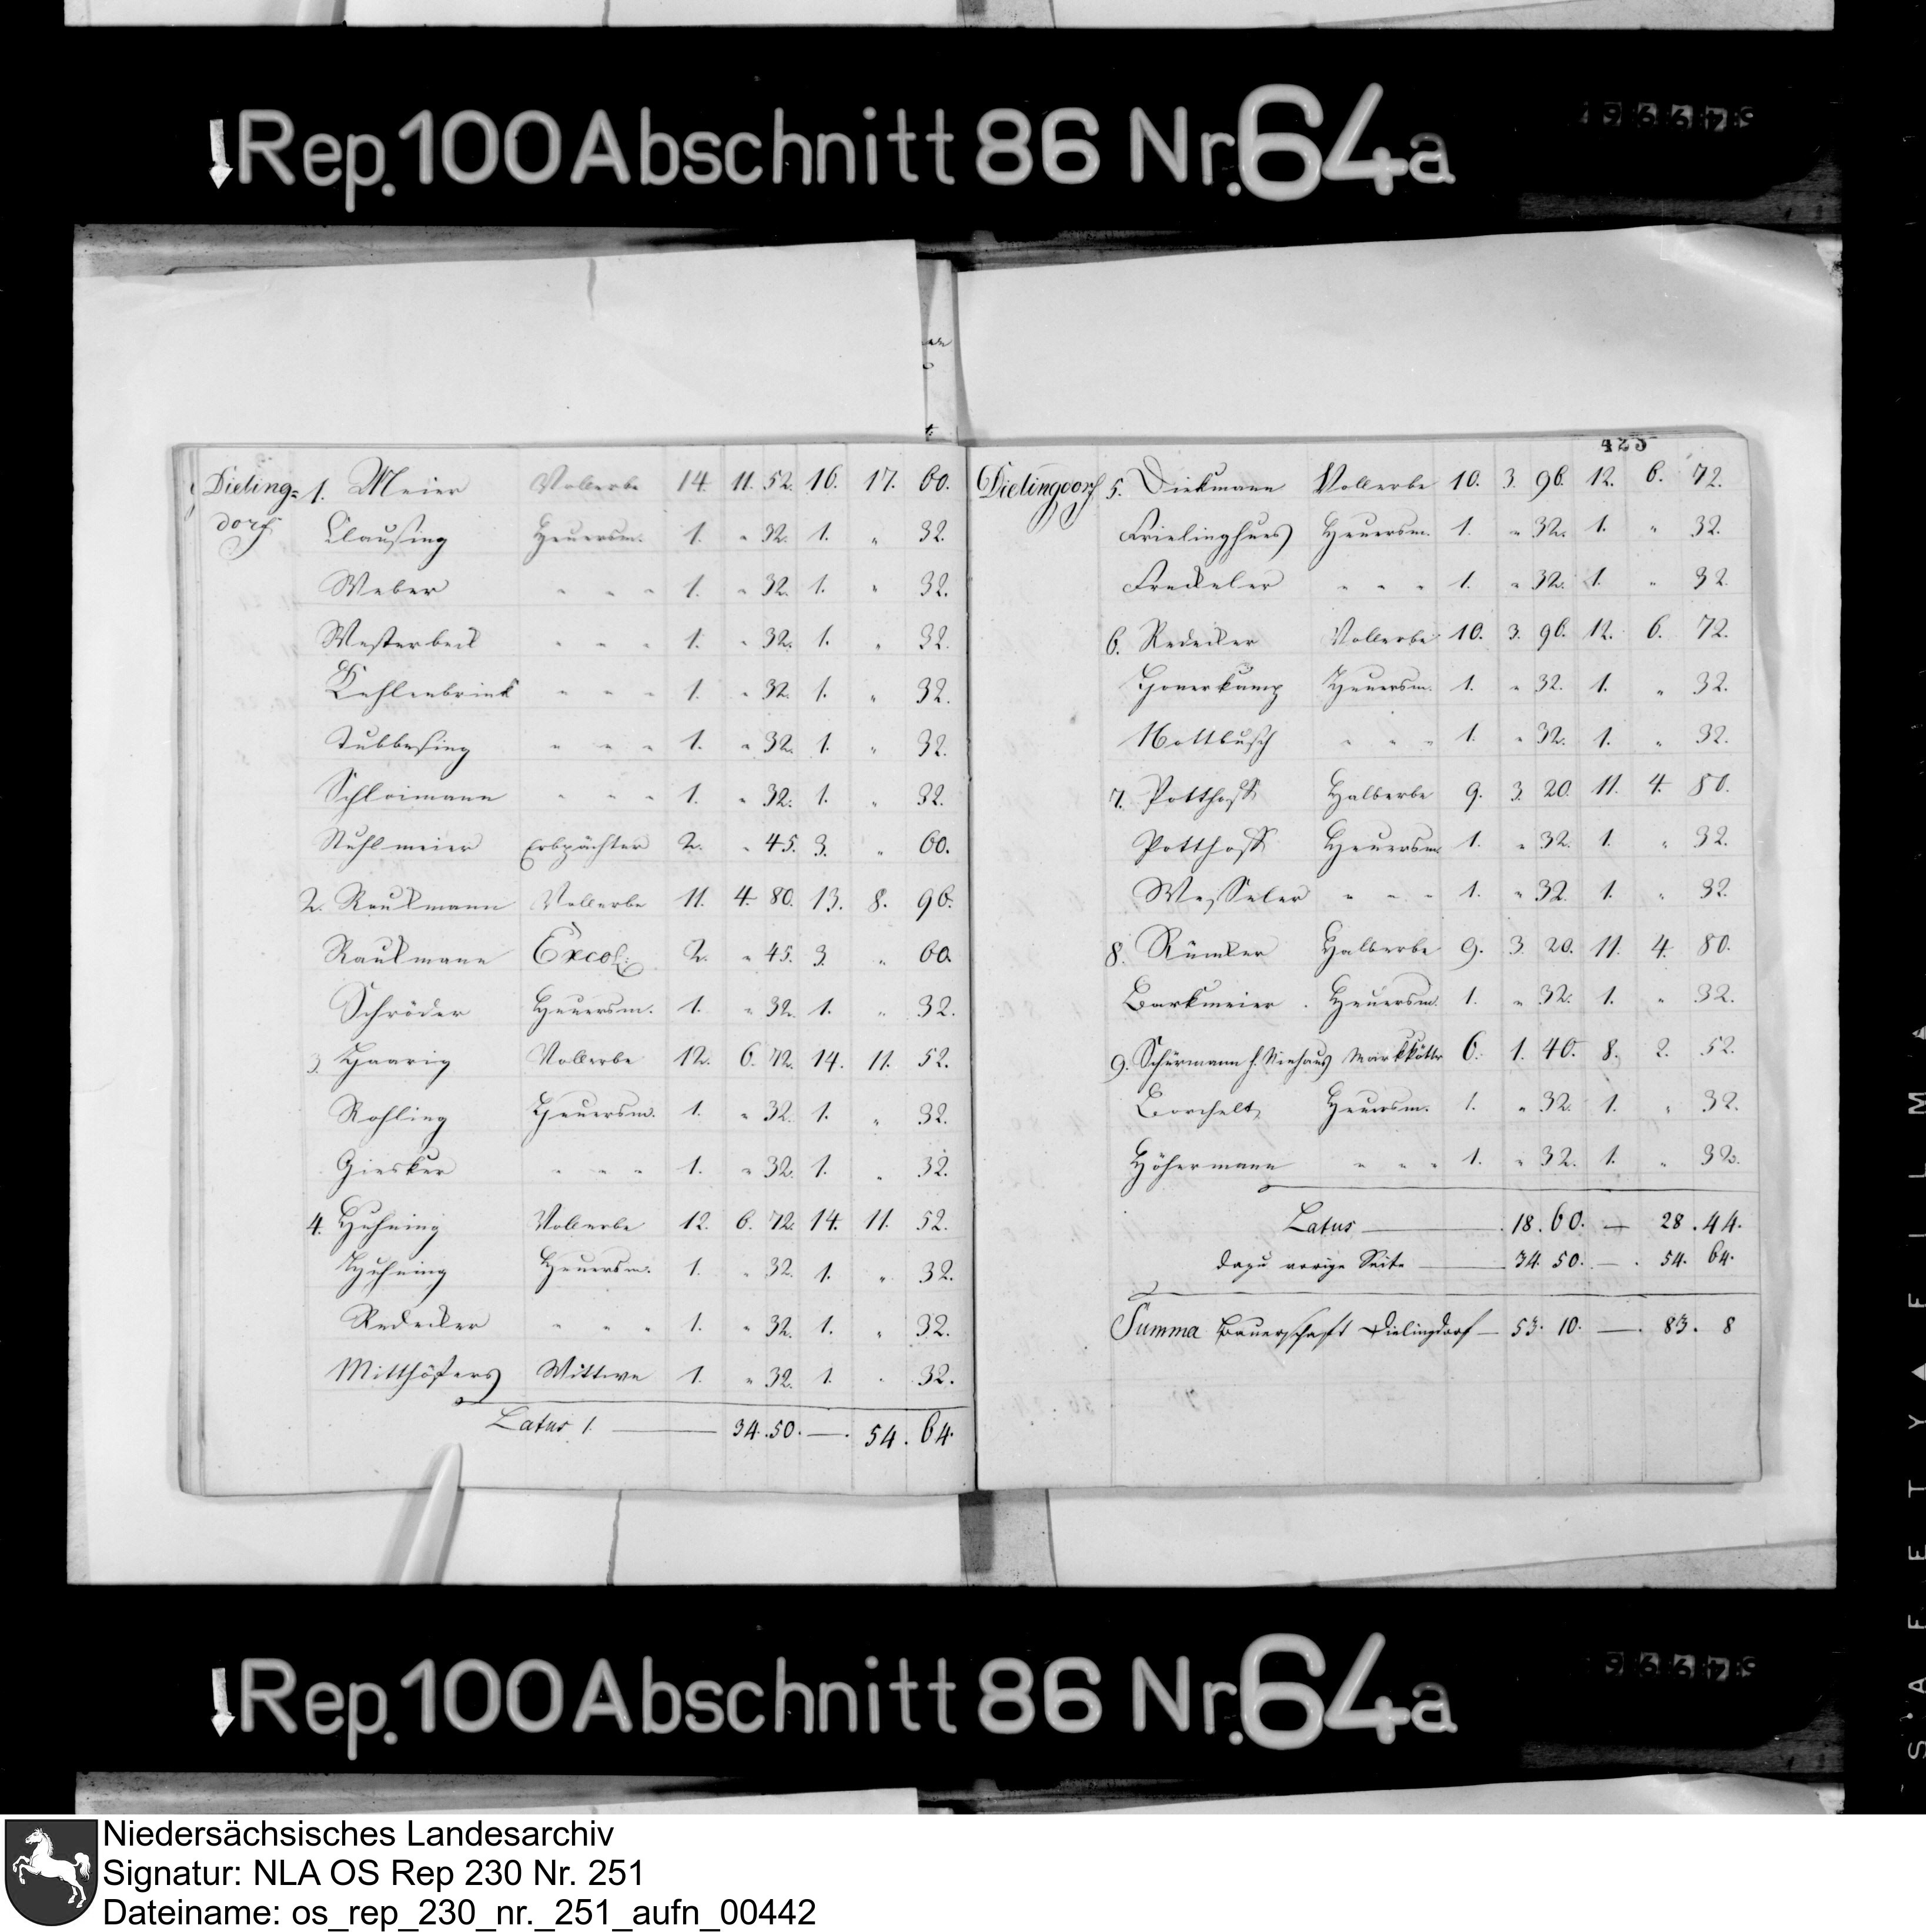 Rep. 100 Abschnitt 86 Nr. 64a
425
Dieling= 1. Meier Vollerbe 14. 11. 52. 16. 17. 60.
dorf Clausing Heuersm. 1. " 32. 1. " 32.
Weber " " " 1. " 32. 1. " 32.
Westerbeck " " " 1. " 32. 1. " 32.
Kehlenbrink " " " 1. " 32. 1. " 32.
Tubbesing " " " 1. " 32. 1. " 32.
Schloimann " " " 1. " 32. 1. " 32.
Stuhlmeier Erbpächter 2. " 45. 3. " 60.
2. Raukmann Vollerbe 11. 4. 80. 13. 8. 96.
Raukmann Excol: 2. " 45. 3. " 60.
Schröder Heuersm. 1. " 32. 1. " 32.
3. Haarig Vollerbe 12. 6. 72. 14. 11. 52.
Rohling Heuersm. 1. " 32. 1. " 32.
Giesker " " " 1. " 32. 1. " 32.
4. Huhning Vollerbe 12. 6. 72. 14. 11. 52.
Huhning Heuersm. 1. " 32. 1. " 32.
Redecker " " " 1. " 32. 1. " 32.
Mitthöfers Wittwe 1. " 32. 1. " 32.
Latus 1. — 34. 50. — 54. 64.
Dielingdorf 5. Diekmann Vollerbe 10. 3. 96. 12. 6. 72.
Frielinghues Heuersm. 1. " 32. 1. " 32.
Freckeler " " " 1. " 32. 1. " 32.
6. Redecker Vollerbe 10. 3. 96. 12. 6. 72.
Honerkamp Heuersm. 1. " 32. 1. " 32.
Nottbusch " " " 1. " 32. 1. " 32.
7. Potthoff Halberbe 9. 3. 20. 11. 4. 80.
Potthoff Heuersm. 1. " 32. 1. " 32.
Wesseler " " " 1. " 32. 1. " 32.
8. Rümker Halberbe 9. 3. 20. 11. 4. 80.
Barkmeier Heuersm. 1. " 32. 1. " 32.
9. Schürmann f. Niehaus Markkötter 6. 1. 40. 8. 2. 52.
Borchelt Heuersm. 1. " 32. 1. " 32.
Höhermann " " " 1. " 32. 1. " 32.
Latus — 18. 60. — 28. 44.
dazu vorige Seite — 34. 50. — 54. 64.
Summa Bauerschaft Dielingdorf — 53. 10. — 83. 8
Rep. 100 Abschnitt 86 Nr. 64a
SAFETY FILM
Niedersächsisches Landesarchiv
Signatur: NLA OS Rep 230 Nr. 251
Dateiname: os_rep_230_nr._251_aufn_00442